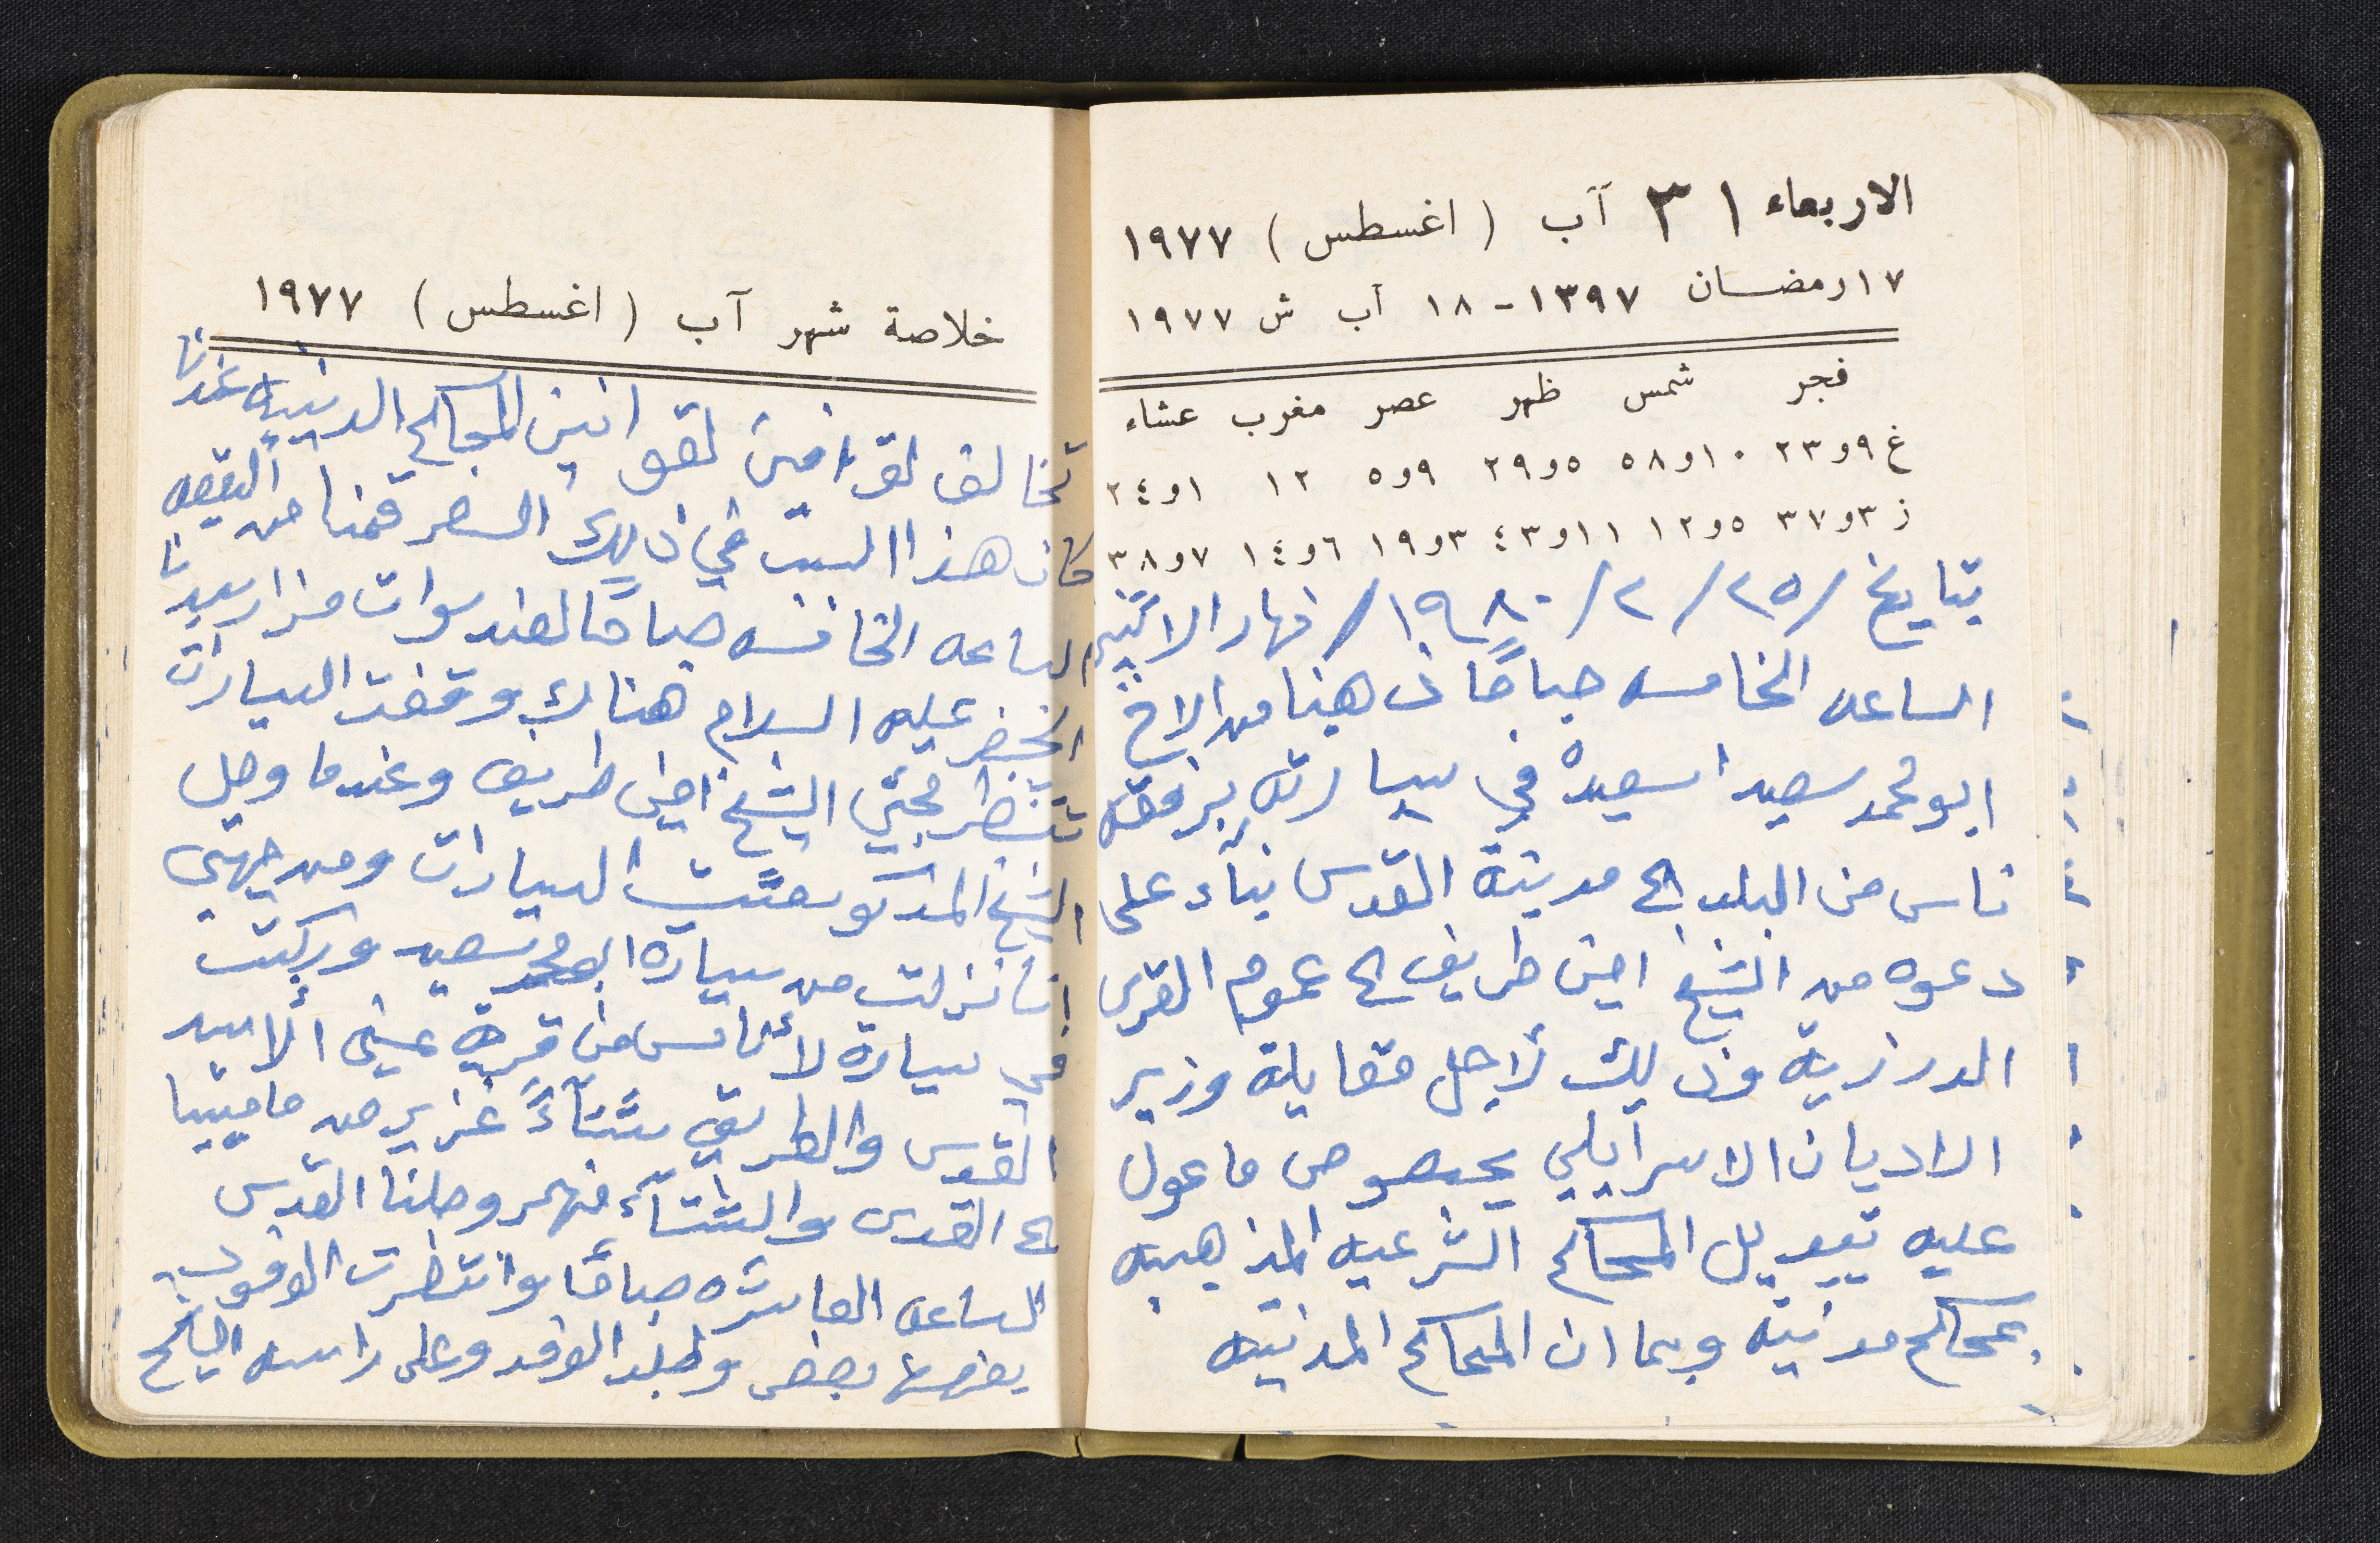 الاربعاء ٣١ آب (اغسطس) ١٩٧٧
١٧ رمضان ١٣٩٧ - ١٨ آب ش ١٩٧٧
فجر شمس ظهر عصر مغرب عشاء
غ ٩و٢٣ ١٠و٥٨ ٥و٢٩ ٩و٥ ١٢ ١و٢٤
ز ٣و٣٧ ٥و١٢ ١١و٤٣ ٣و١٩ ٦و١٤ ٧و٣٨
بتاريخ /٢٥/٢/١٩٨٠/ نهار الاثنين
الساعه الخامسه صباحًا ذهبنا من الاخ
ابو محمد سعيد اسعيد في سيارته برفقه
ناس من البلد الى مدينة القدس بنآء على
دعوه من الشيخ امين طريف الى عموم القرى
الدرزية وذلك لأجل مقابلة وزير
الاديان الاسرآيلي بخصوص ما عول
عليه تبديل المحاكم الشرعيه المذهبيه
بمحاكم مدنيه وبما ان المحاكم المدنيه
خلاصة شهر آب (اغسطس) ١٩٧٧
تخالف لقوانين لقوانين المحاكم الدينيه عندنا
كان هذا السبب في ذلك السفر قمنا من البقيعه
الساعه الخامسه صباحًا لعند بوات مزار سيدنا
الخضر عليه السلام هناك وقفت السيارات
تنتظر مجيء الشيخ امين طريف وعندما وصل
الشيخ المذكور مشت السيارات ومن جهتي
انا نزلت من سيارة ابو محمد سعيد وركبت
في سيارة لأناس من قرية عين الأسد
القدس والطريق شتآءً غزير من ما مشينا
الى القدس والشتآء منهمر وصلنا القدس
الساعه العاشره صباحًا وانتظرت الوفود
بعضها بعض ولبد الوفد وعلى راسه الشيخ